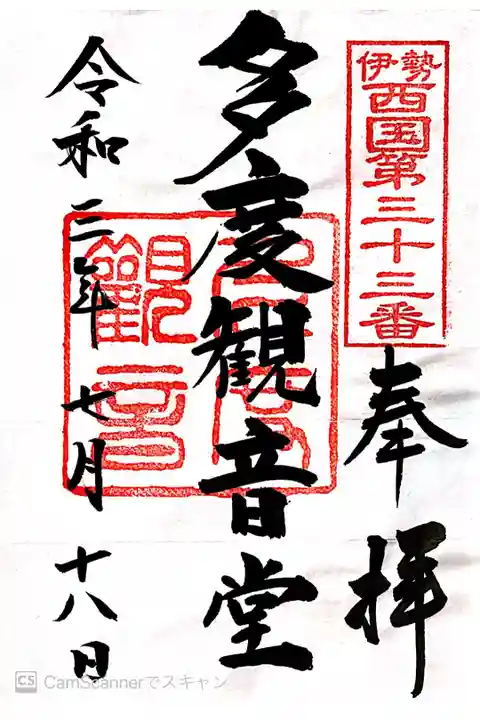 伊勢
西国第三十三番
奉拝
多度観音堂
令和三年七月十八日
CS CamScannerでスキャン